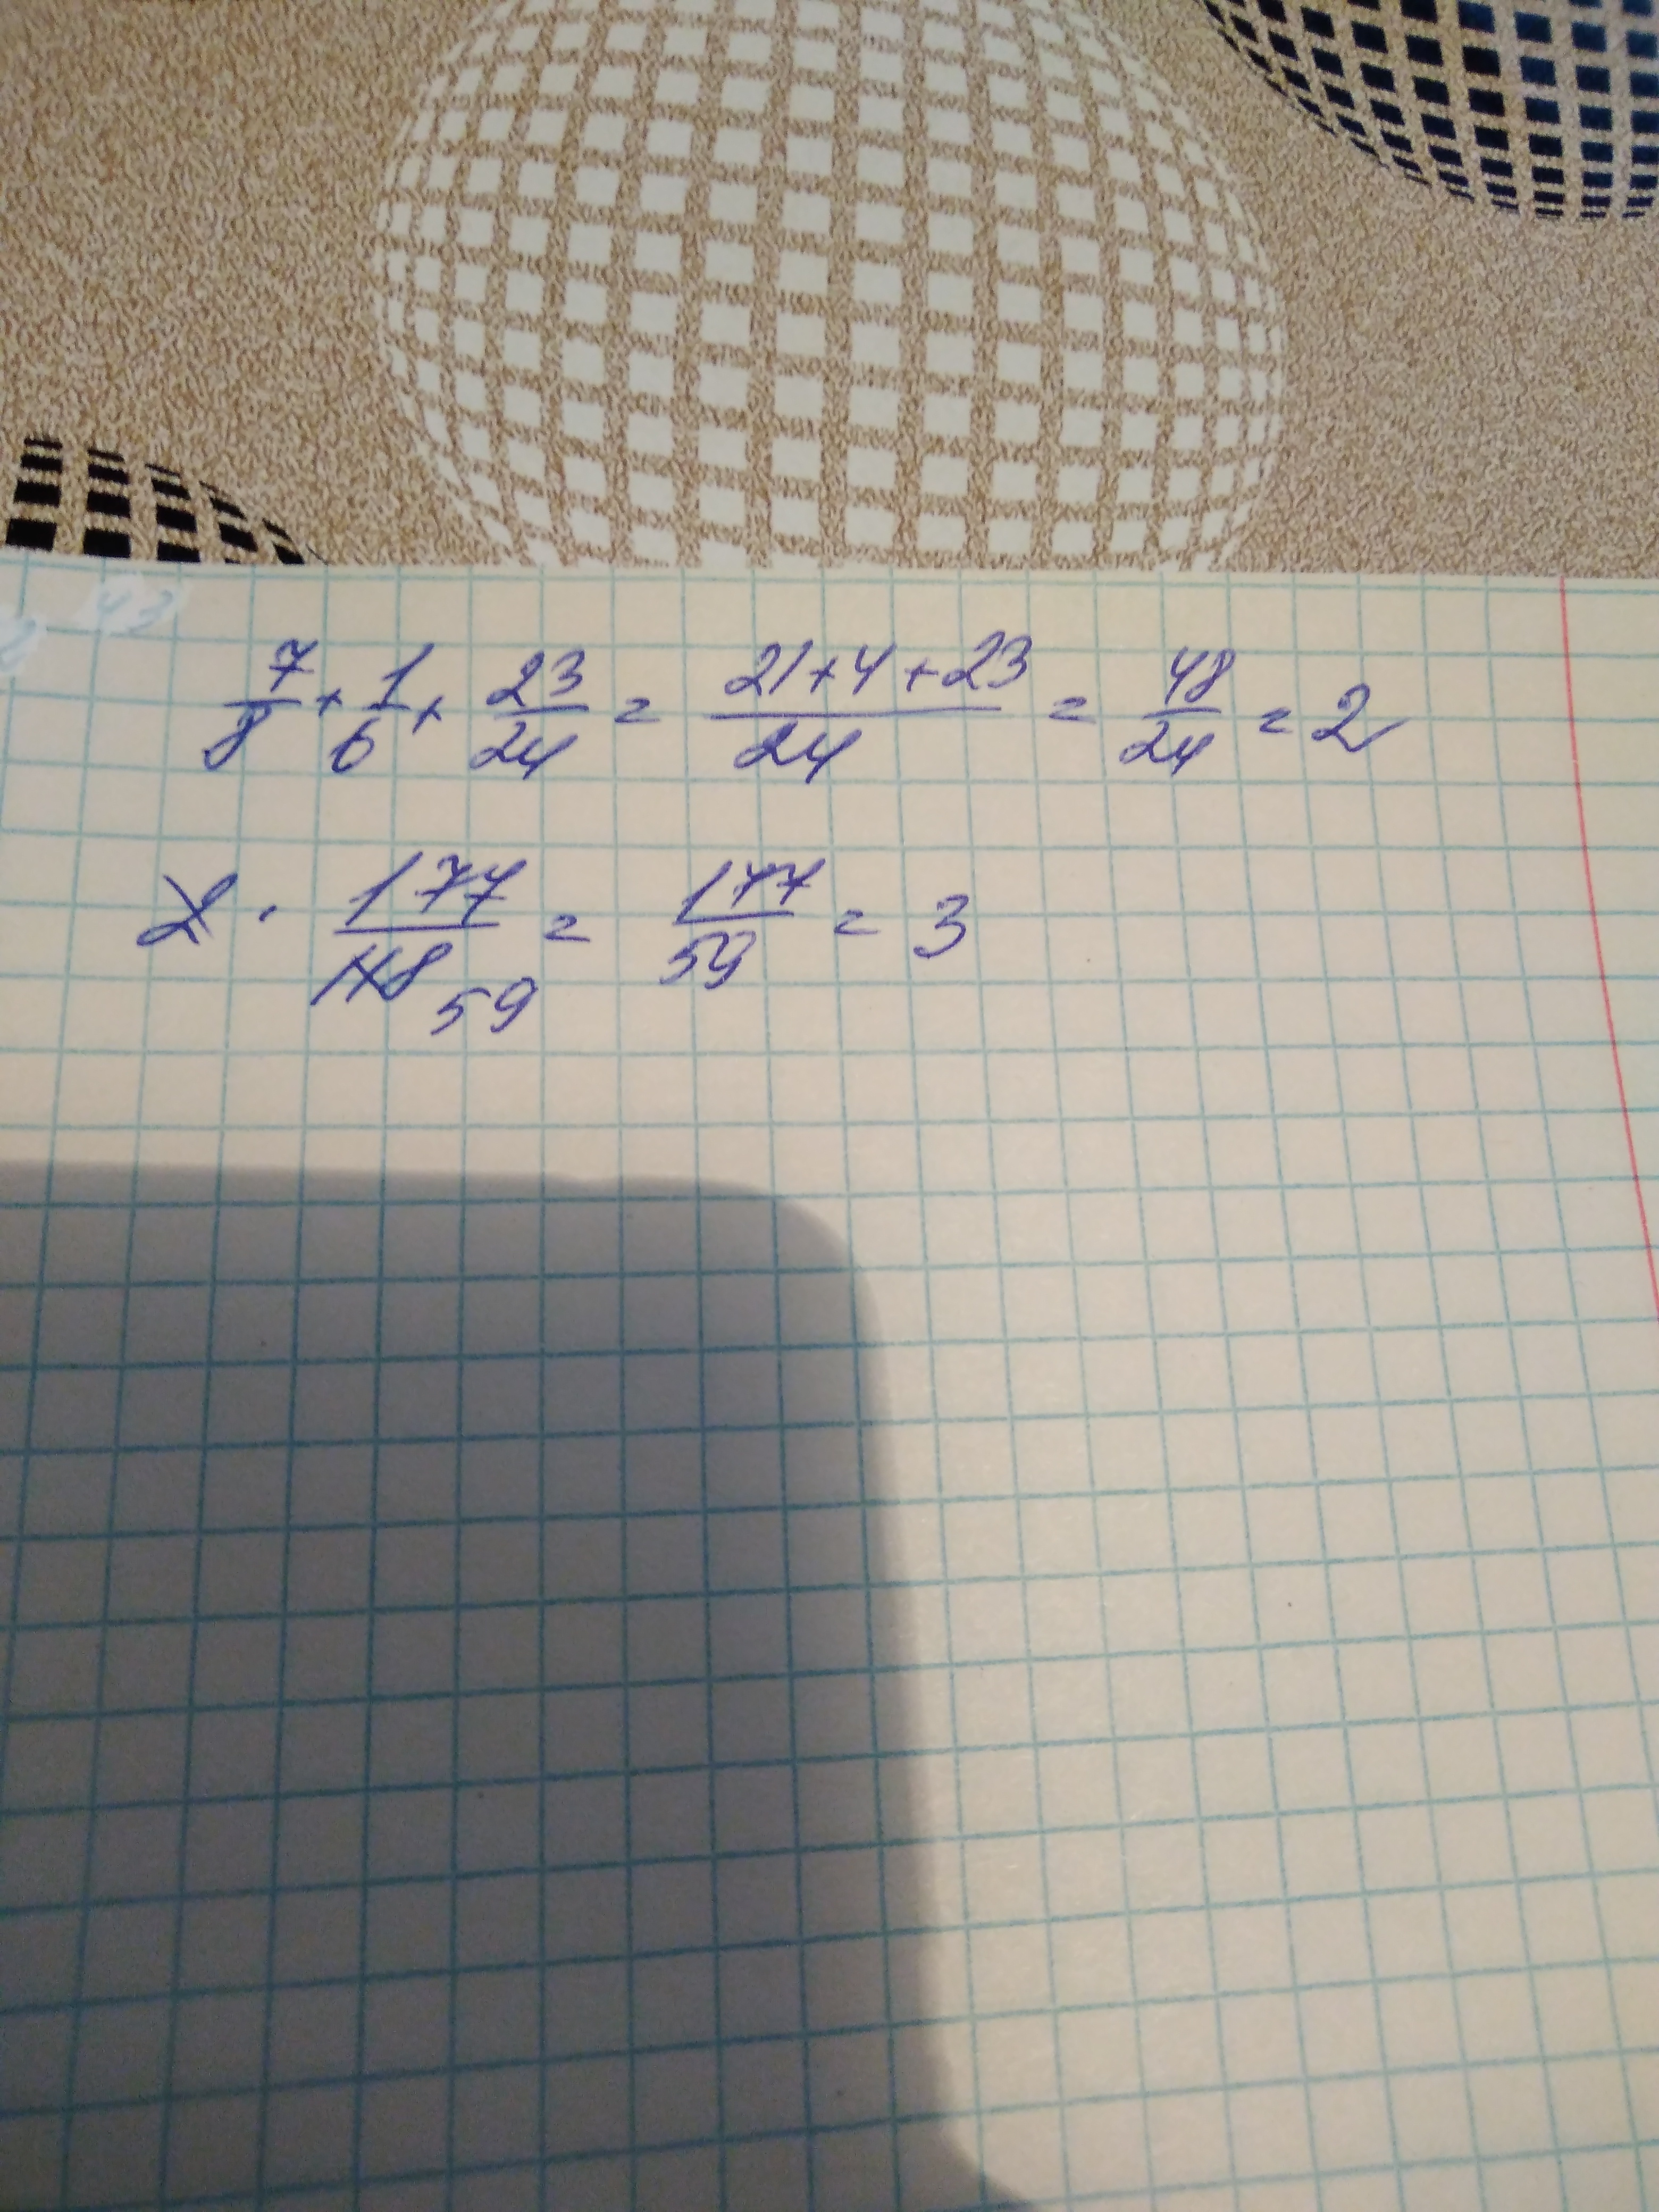 43
7/8 + 1/6 + 23/24 = 21+4+23/24 = 48/24 = 2
2 · 177/118 59 = 177/59 = 3